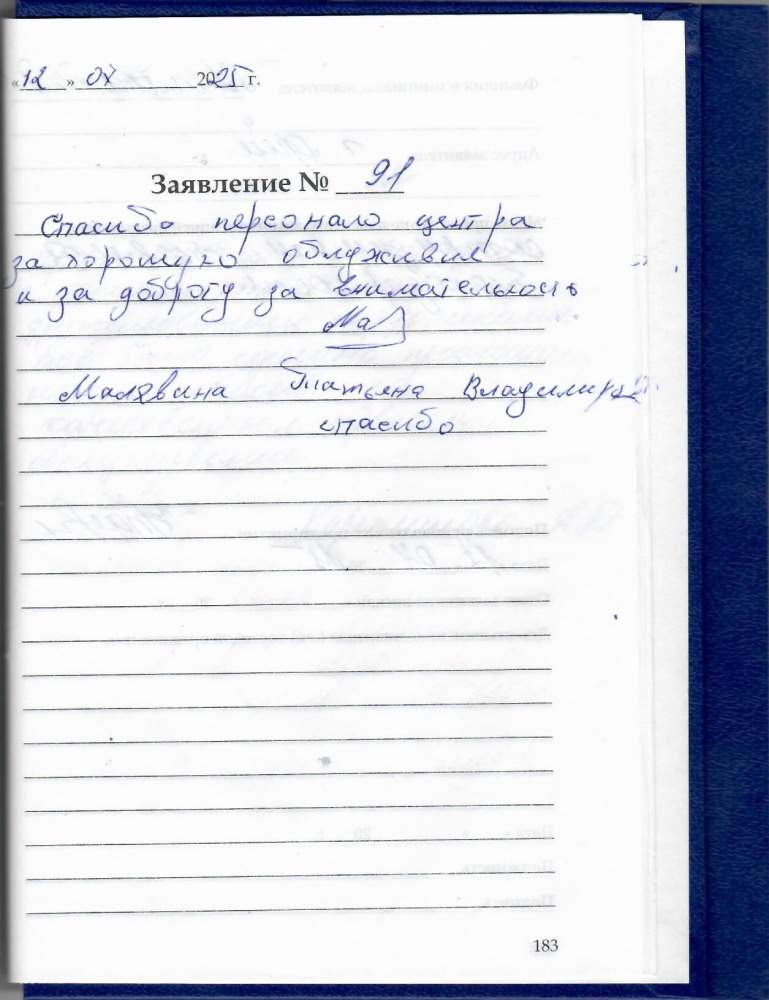 «12» 07 2025 г.
Заявление № 91
Спасибо персонало центра
за хорошую облуживие
и за доброту за внимательность
Малявина Татьяна Владимир
спасибо
183